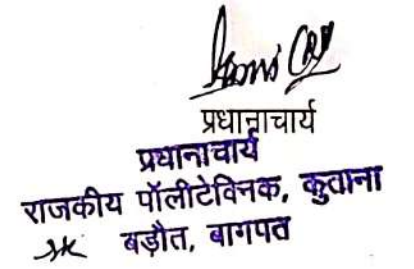 प्रधानाचार्य
प्रधानाचार्य
राजकीय पॉलीटेक्निक, कुताना
बड़ौत, बागपत